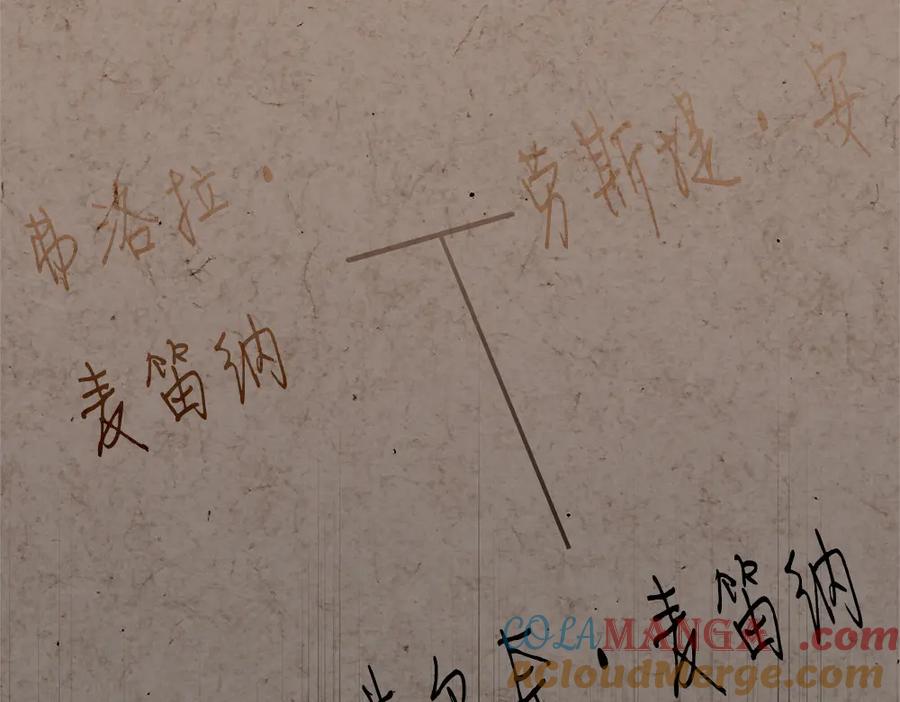 弗洛拉·
麦笛纳
劳斯提·安
·麦笛纳
COLAMANGA.com
CloudMerge.com